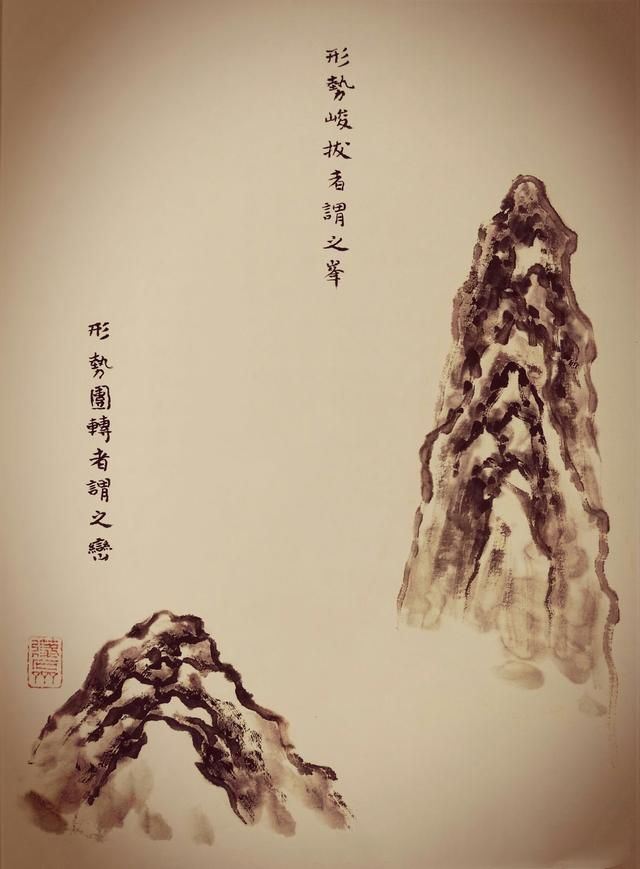 形勢峻拔者謂之峯
形勢團轉者謂之巒